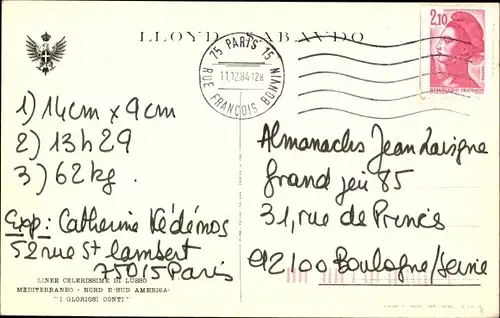 LLOYD SABAUDO
75 PARIS 15
11.12.84 12H
RUE FRANÇOIS BONVIN
2,10
RÉPUBLIQUE FRANÇAISE
1) 14cm x 9cm
2) 13h29
3) 62kg.
Exp: Catherine Védémos
52 rue St lambert
75015 Paris
LINEE CELERISSIME DI LUSSO
MEDITERRANEO - NORD E SUD AMERICA
"I GLORIOSI CONTI"
Almanachs Jean Lavigne
grand jeu 85
31, rue de Princis
92100 Boulogne/Seine